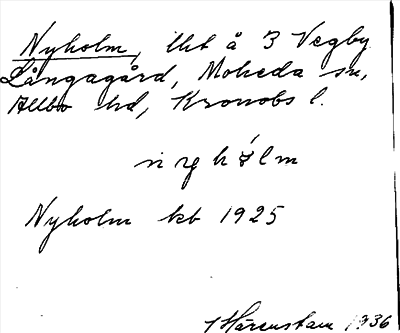 Nyholm, lht å 3 Vegby
Långagård, Moheda sn,
Allbo hd, Kronobs l.
Nyholm kb 1925
1936